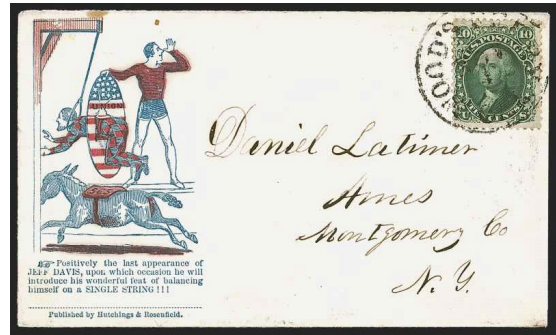 UNION
Positively the last appearance of
JEFF DAVIS, upon which occasion he will
introduce his wonderful feat of balancing
himself on a SINGLE STRING!!!
Published by Hutchings & Rosenfield.
10 U.S. POSTAGE 10
TEN CENTS
WOOD'S
Daniel Latimer
Ames
Montgomery Co
N.Y.